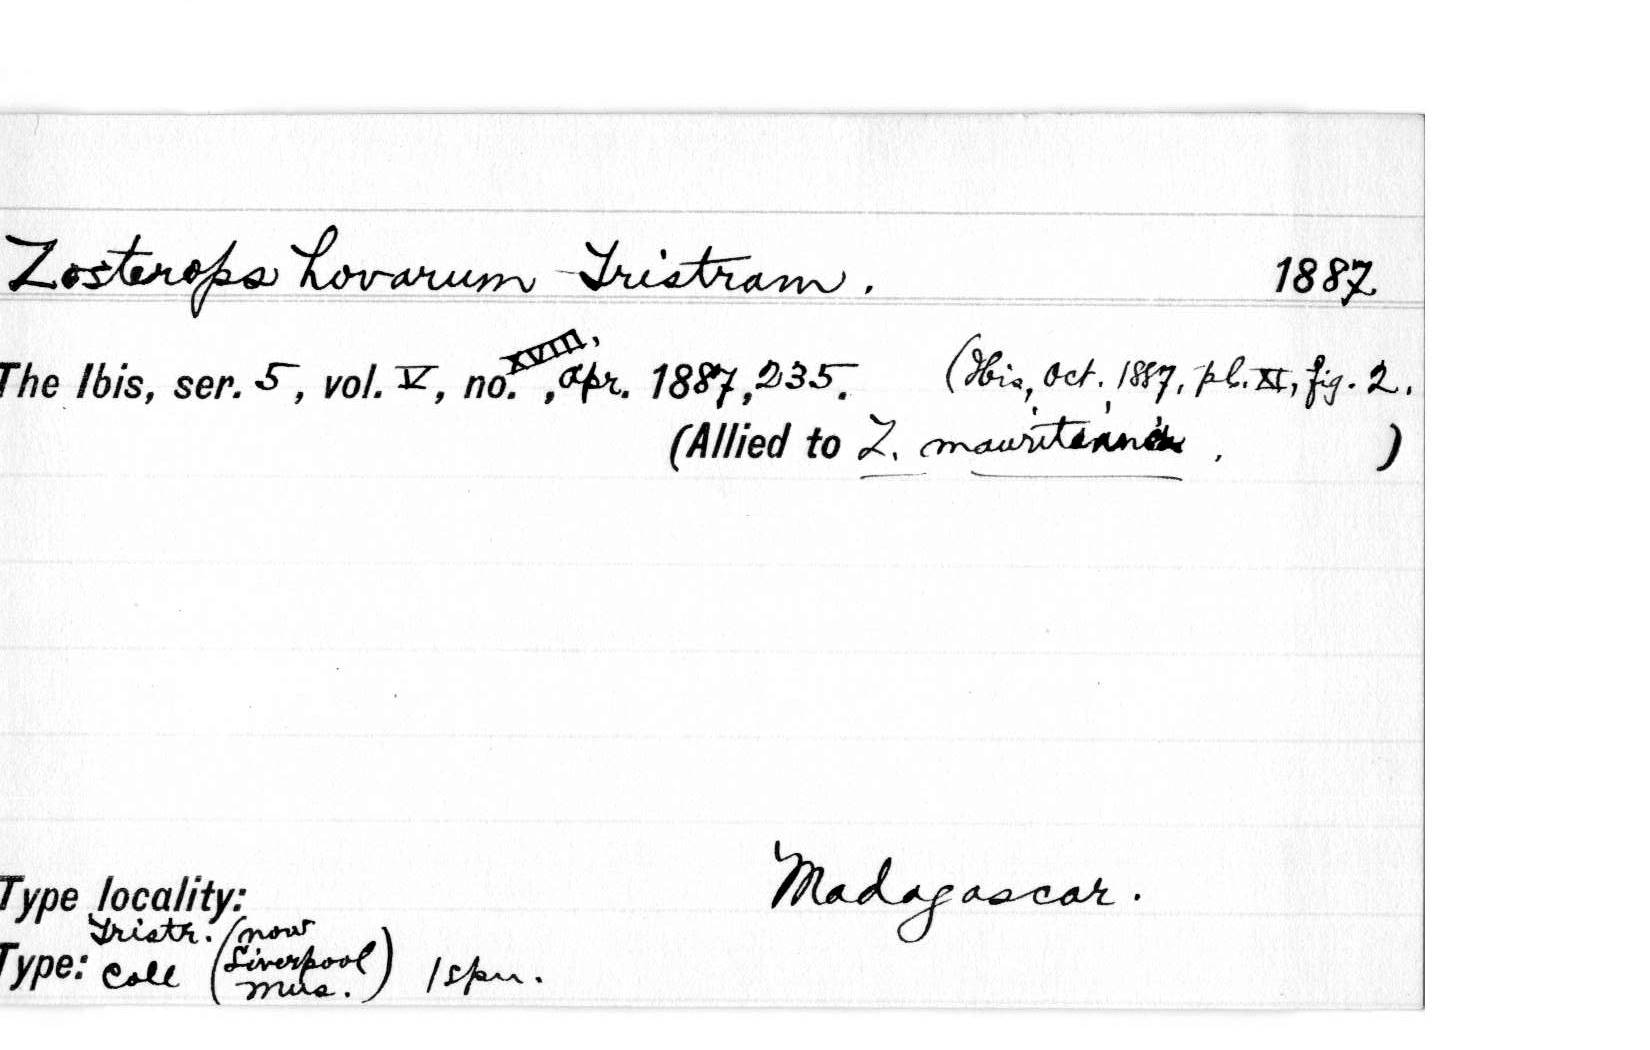 Zosterops hovarum Tristram. 1887
The Ibis, ser. 5, vol. V, no. XVIII, apr. 1887, 235. (Ibis, Oct. 1887, pl. XI, fig. 2.
(Allied to Z. )
Type locality: Madagascar.
Type: Tristr. Coll (now Liverpool Mus.) 1 spm.